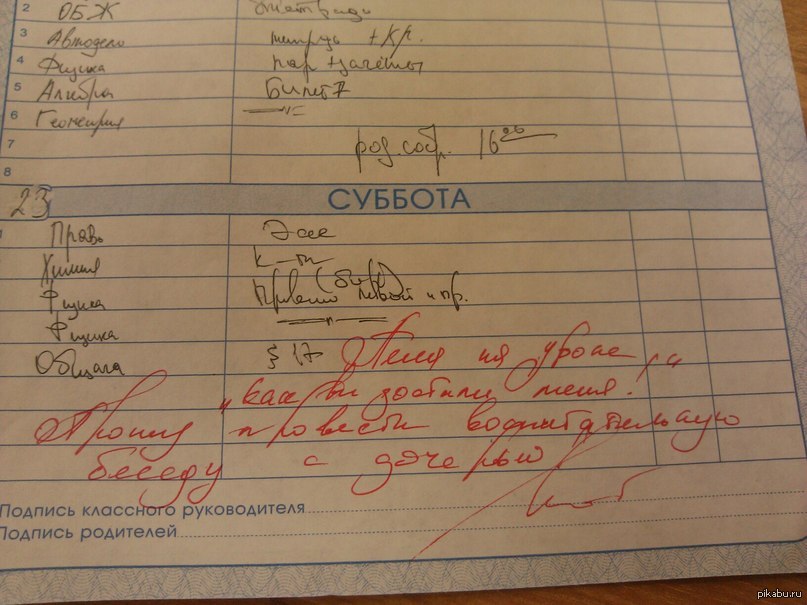 2 ОБЖ тетрадь
3 Автодело тетрадь + кр.
4 Физика пар + зачёты
5 Алгебра Билет 7
6 Геометрия —"—
7 род. собр. 16 00
8
23 СУББОТА
Право Эссе
Химия к-т
Физика (бир)
правой и пр.
Физика —"—
Общага § 17 Пела на уроке
"как вы достали меня!"
Прошу провести воспитательную
беседу с дочерью
Подпись классного руководителя
Подпись родителей
pikabu.ru